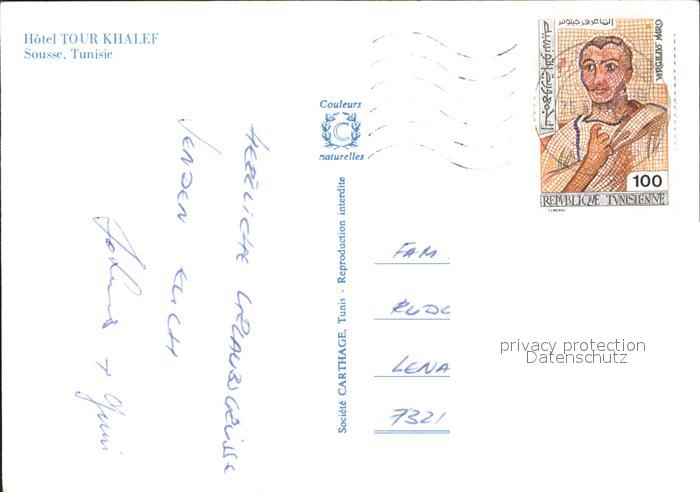 Hôtel TOUR KHALEF
Sousse, Tunisie
Couleurs
C
naturelles
HERZLICHE URLAUBSGRÜSSE
SENDEN EUCH
Société CARTHAGE, Tunis - Reproduction interdite
VERGILIUS MARO
الجمهورية التونسية
100
REPUBLIQUE TUNISIENNE
FAM.
RUDO
LENA
7321
privacy protection
Datenschutz